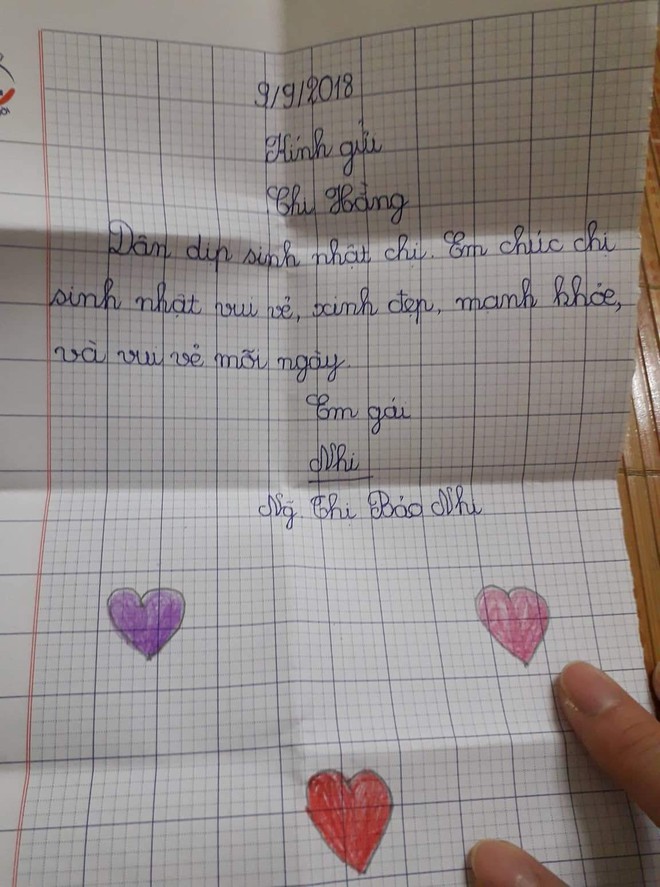 9/9/2018
Kính gửi
Chị Hằng
Dân dịp sinh nhật chị. Em chúc chị
sinh nhật vui vẻ, xinh đẹp, mạnh khỏe,
và vui vẻ mỗi ngày.
Em gái
Nhi
Ng̃. Thị Bảo Nhi